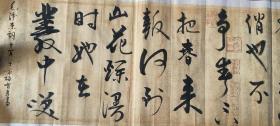 俏也不
争春只
把春来
报待到
山花烂漫
时她在
丛中笑